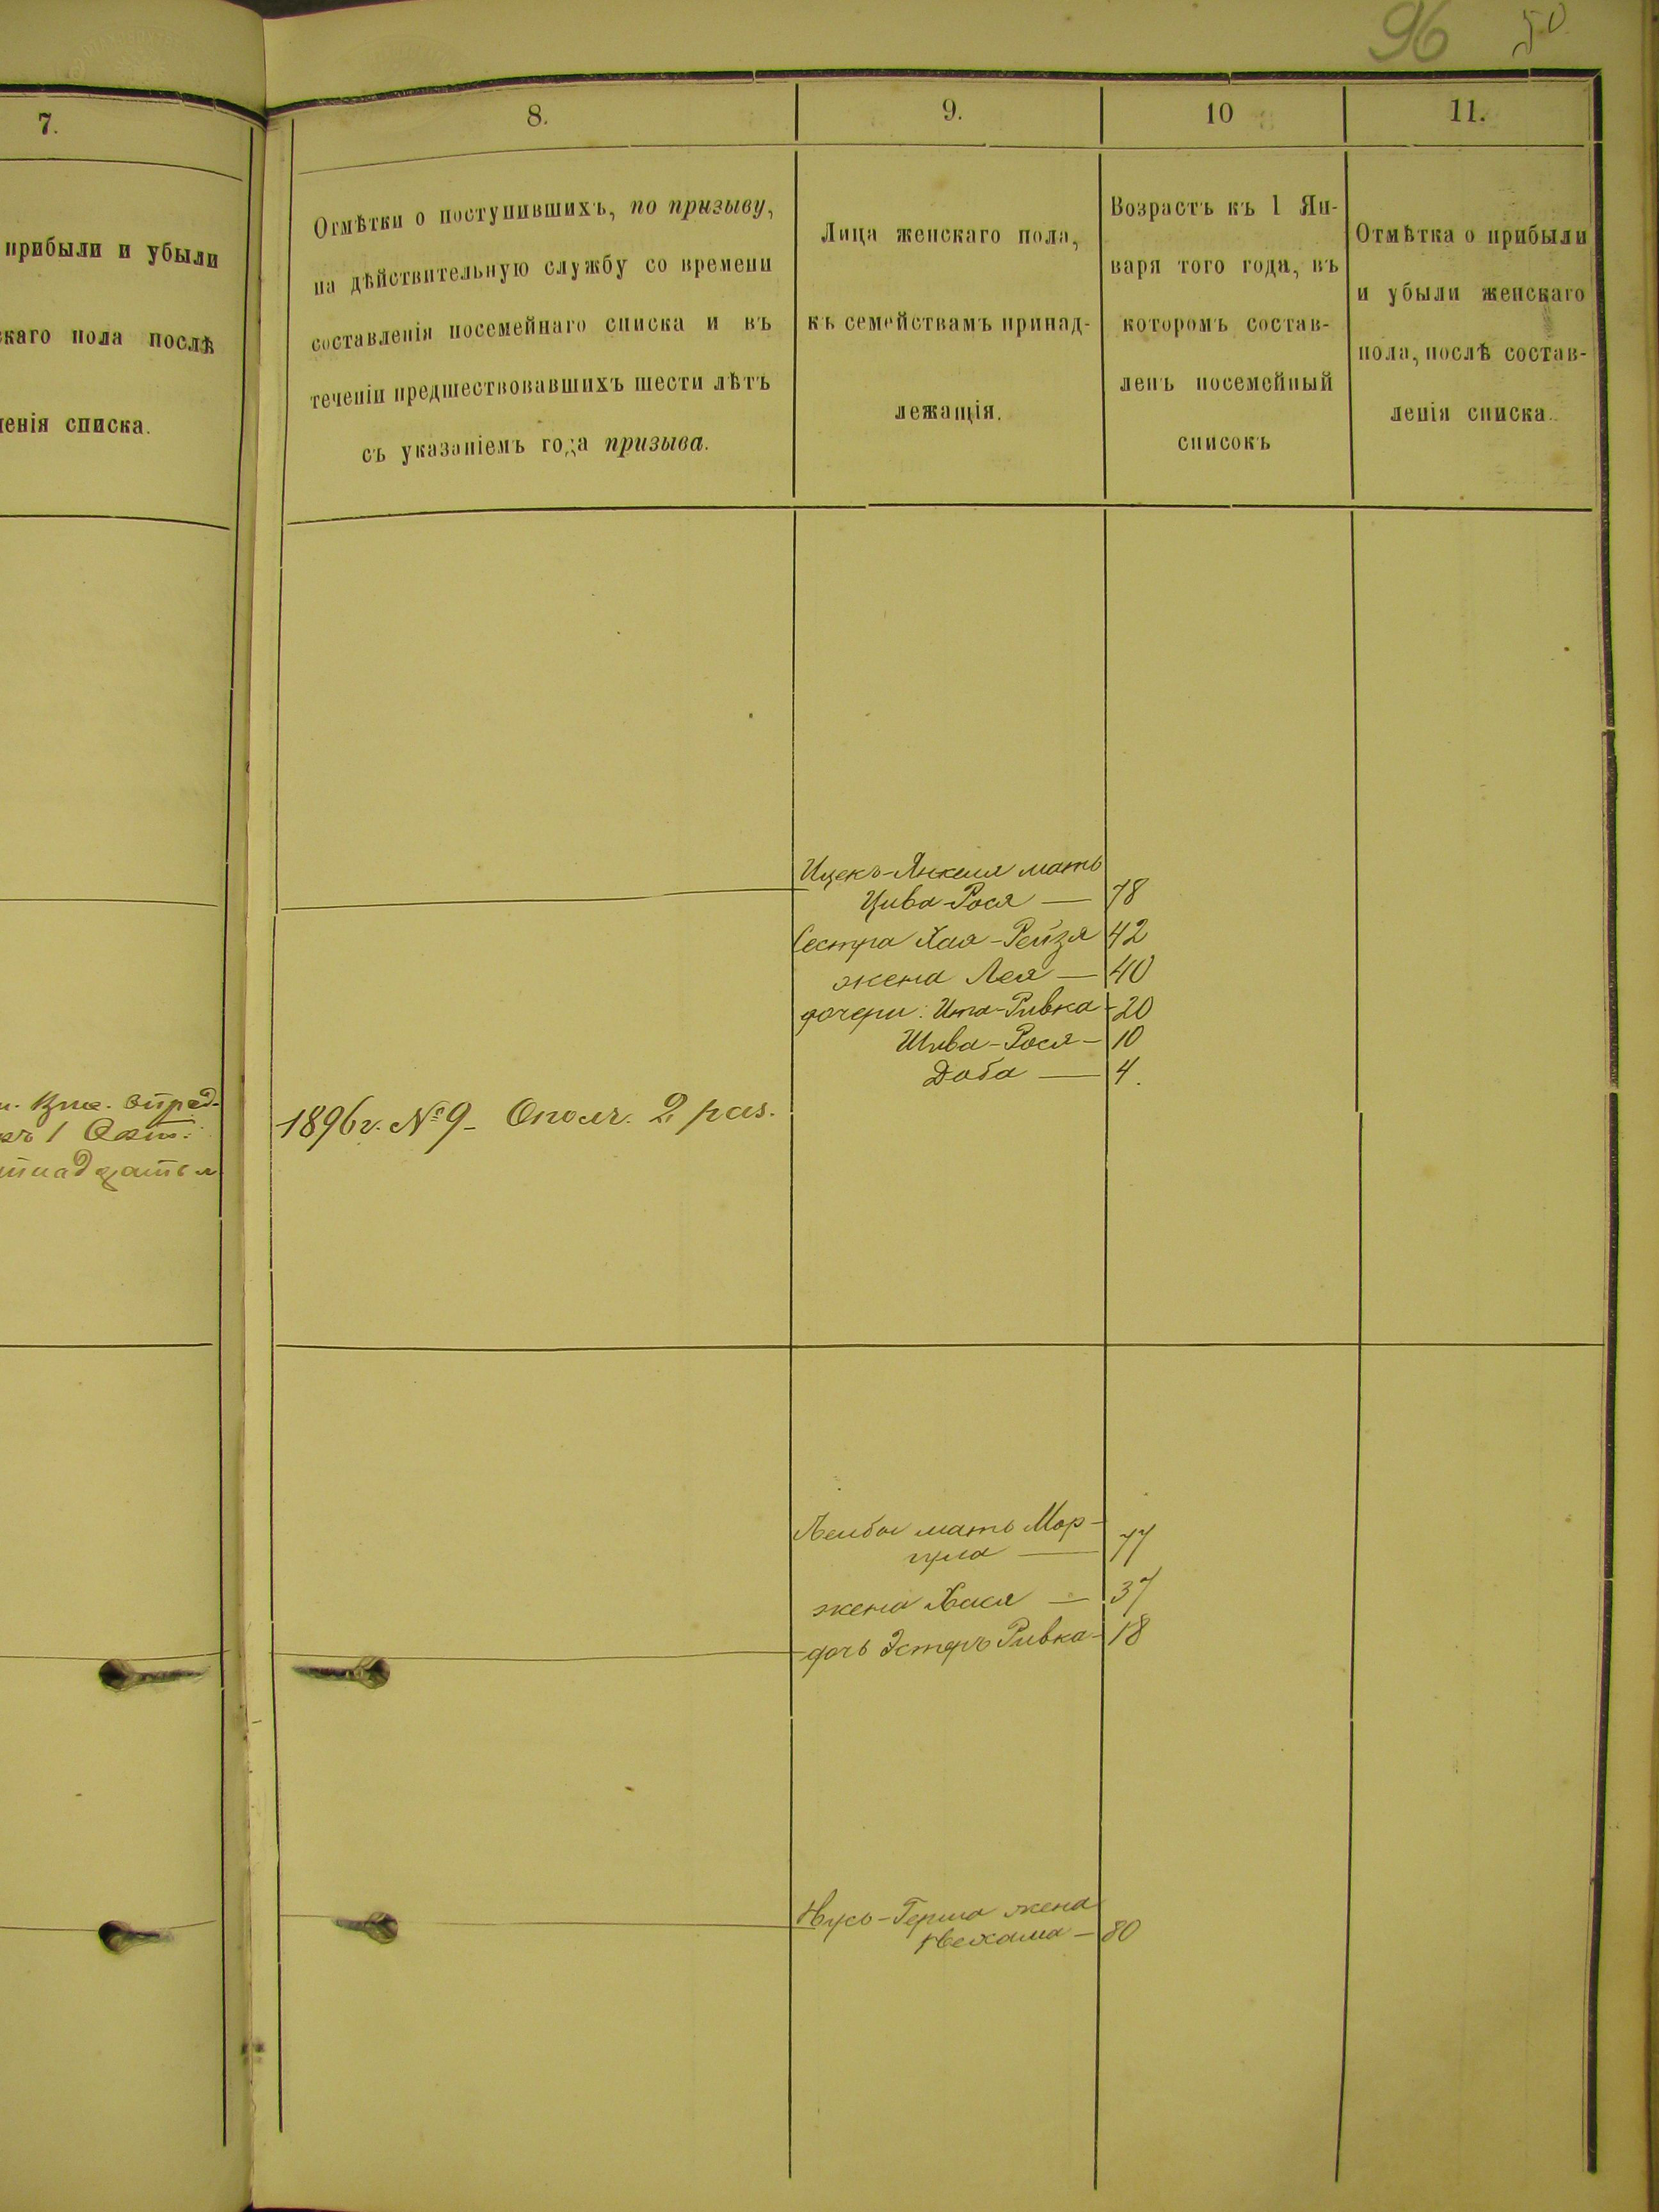 96 50
7.
прибыли и убыли
скаго пола послѣ
ленія списка.
8.
Отмѣтки о поступившихъ, по призыву,
на дѣйствительную службу со времени
составленія посемейнаго списка и въ
теченіи предшествовавшихъ шести лѣтъ
съ указаніемъ года призыва.
9.
Лица женскаго пола,
къ семействамъ принад-
лежащія.
10
Возрастъ къ 1 Ян-
варя того года, въ
которомъ состав-
ленъ посемейный
списокъ
11.
Отмѣтка о прибыли
и убыли женскаго
пола, послѣ состав-
ленія списка.
Ицекъ-Янкеля мать
Цива-Рося — 78
Сестра Хая-Рейзя 42
жена Лея — 40
дочери: Ита-Ривка - 20
Шива-Рося - 10
Доба — 4.
1896 г. № 9 - Ополч. 2 раз.
Лейбы мать Мор-
— 77
жена Хася — 37
дочь Эстеръ Ривка - 18
Нусь-Герша жена
Нехама — 80